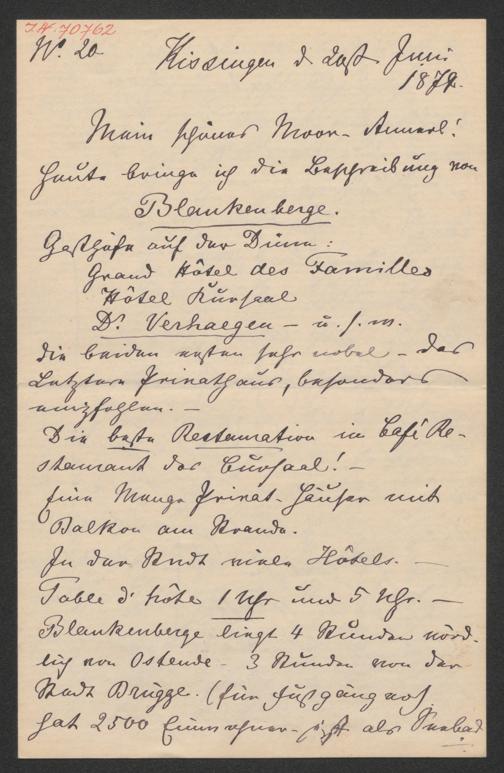 I.N. 70762
No. 20 Kissingen d 20st Juni
1879.
Mein schönes Moor-Annerl!
Heute bringe ich die Beschreibung von
Blankenberge.
Gasthöfe auf der Düne:
Grand Hôtel des Familles
Hôtel Kursaal
Dr. Verhaegen – u. s. w.
die beiden ersten sehr nobel – das
Letztere Privathaus, besonders
empfohlen. –
Die beste Restauration im Café Re-
staurant des Cursaal! –
Eine Menge Privat-Häuser mit
Balkon am Strande.
In der Stadt viele Hôtels. –
Table d'hôte 1 Uhr und 5 Uhr. –
Blankenberge liegt 4 Stunden nörd-
lich von Ostende – 3 Stunden von der
Stadt Brügge. (für Fußgänger)
hat 2500 Einwohner – ist als Seebad